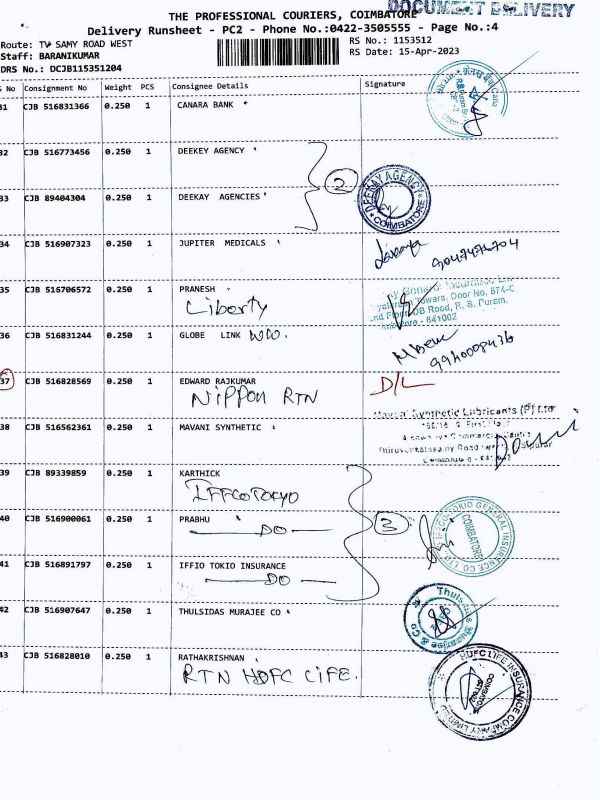 DOCUMENT DELIVERY
THE PROFESSIONAL COURIERS, COIMBATORE
Delivery Runsheet - PC2 - Phone No.:0422-3505555 - Page No.:4
Route: TV SAMY ROAD WEST RS No.: 1153512
Staff: BARANIKUMAR RS Date: 15-Apr-2023
DRS No.: DCJB115351204
S No Consignment No Weight PCS Consignee Details Signature
31 CJB 516831366 0.250 1 CANARA BANK
32 CJB 516773456 0.250 1 DEEKEY AGENCY
2
33 CJB 89404304 0.250 1 DEEKAY AGENCIES
DEEKAY AGENCY
COIMBATORE
34 CJB 516907323 0.250 1 JUPITER MEDICALS
35 CJB 516706572 0.250 1 PRANESH
Liberty
General Insurance
Towars, Door No. 674-C
nd Floor DB Road, R. S. Puram,
- 641002
36 CJB 516831244 0.250 1 GLOBE LINK WW.
9940008436
37 CJB 516828569 0.250 1 EDWARD RAJKUMAR D/L
NIPPON RTN
38 CJB 516562361 0.250 1 MAVANI SYNTHETIC
Synthetic Lubricants (P) Ltd
39 CJB 89339859 0.250 1 KARTHICK
IFFCOTOKYO
40 CJB 516900061 0.250 1 PRABHU
DO
3
IFFCO TOKIO GENERAL INSURANCE CO LTD
COIMBATORE
41 CJB 516891797 0.250 1 IFFIO TOKIO INSURANCE
DO
42 CJB 516907647 0.250 1 THULSIDAS MURAJEE CO
43 CJB 516828010 0.250 1 RATHAKRISHNAN
RTN HDFC LIFE.
HDFC LIFE INSURANCE COMPANY LIMITED